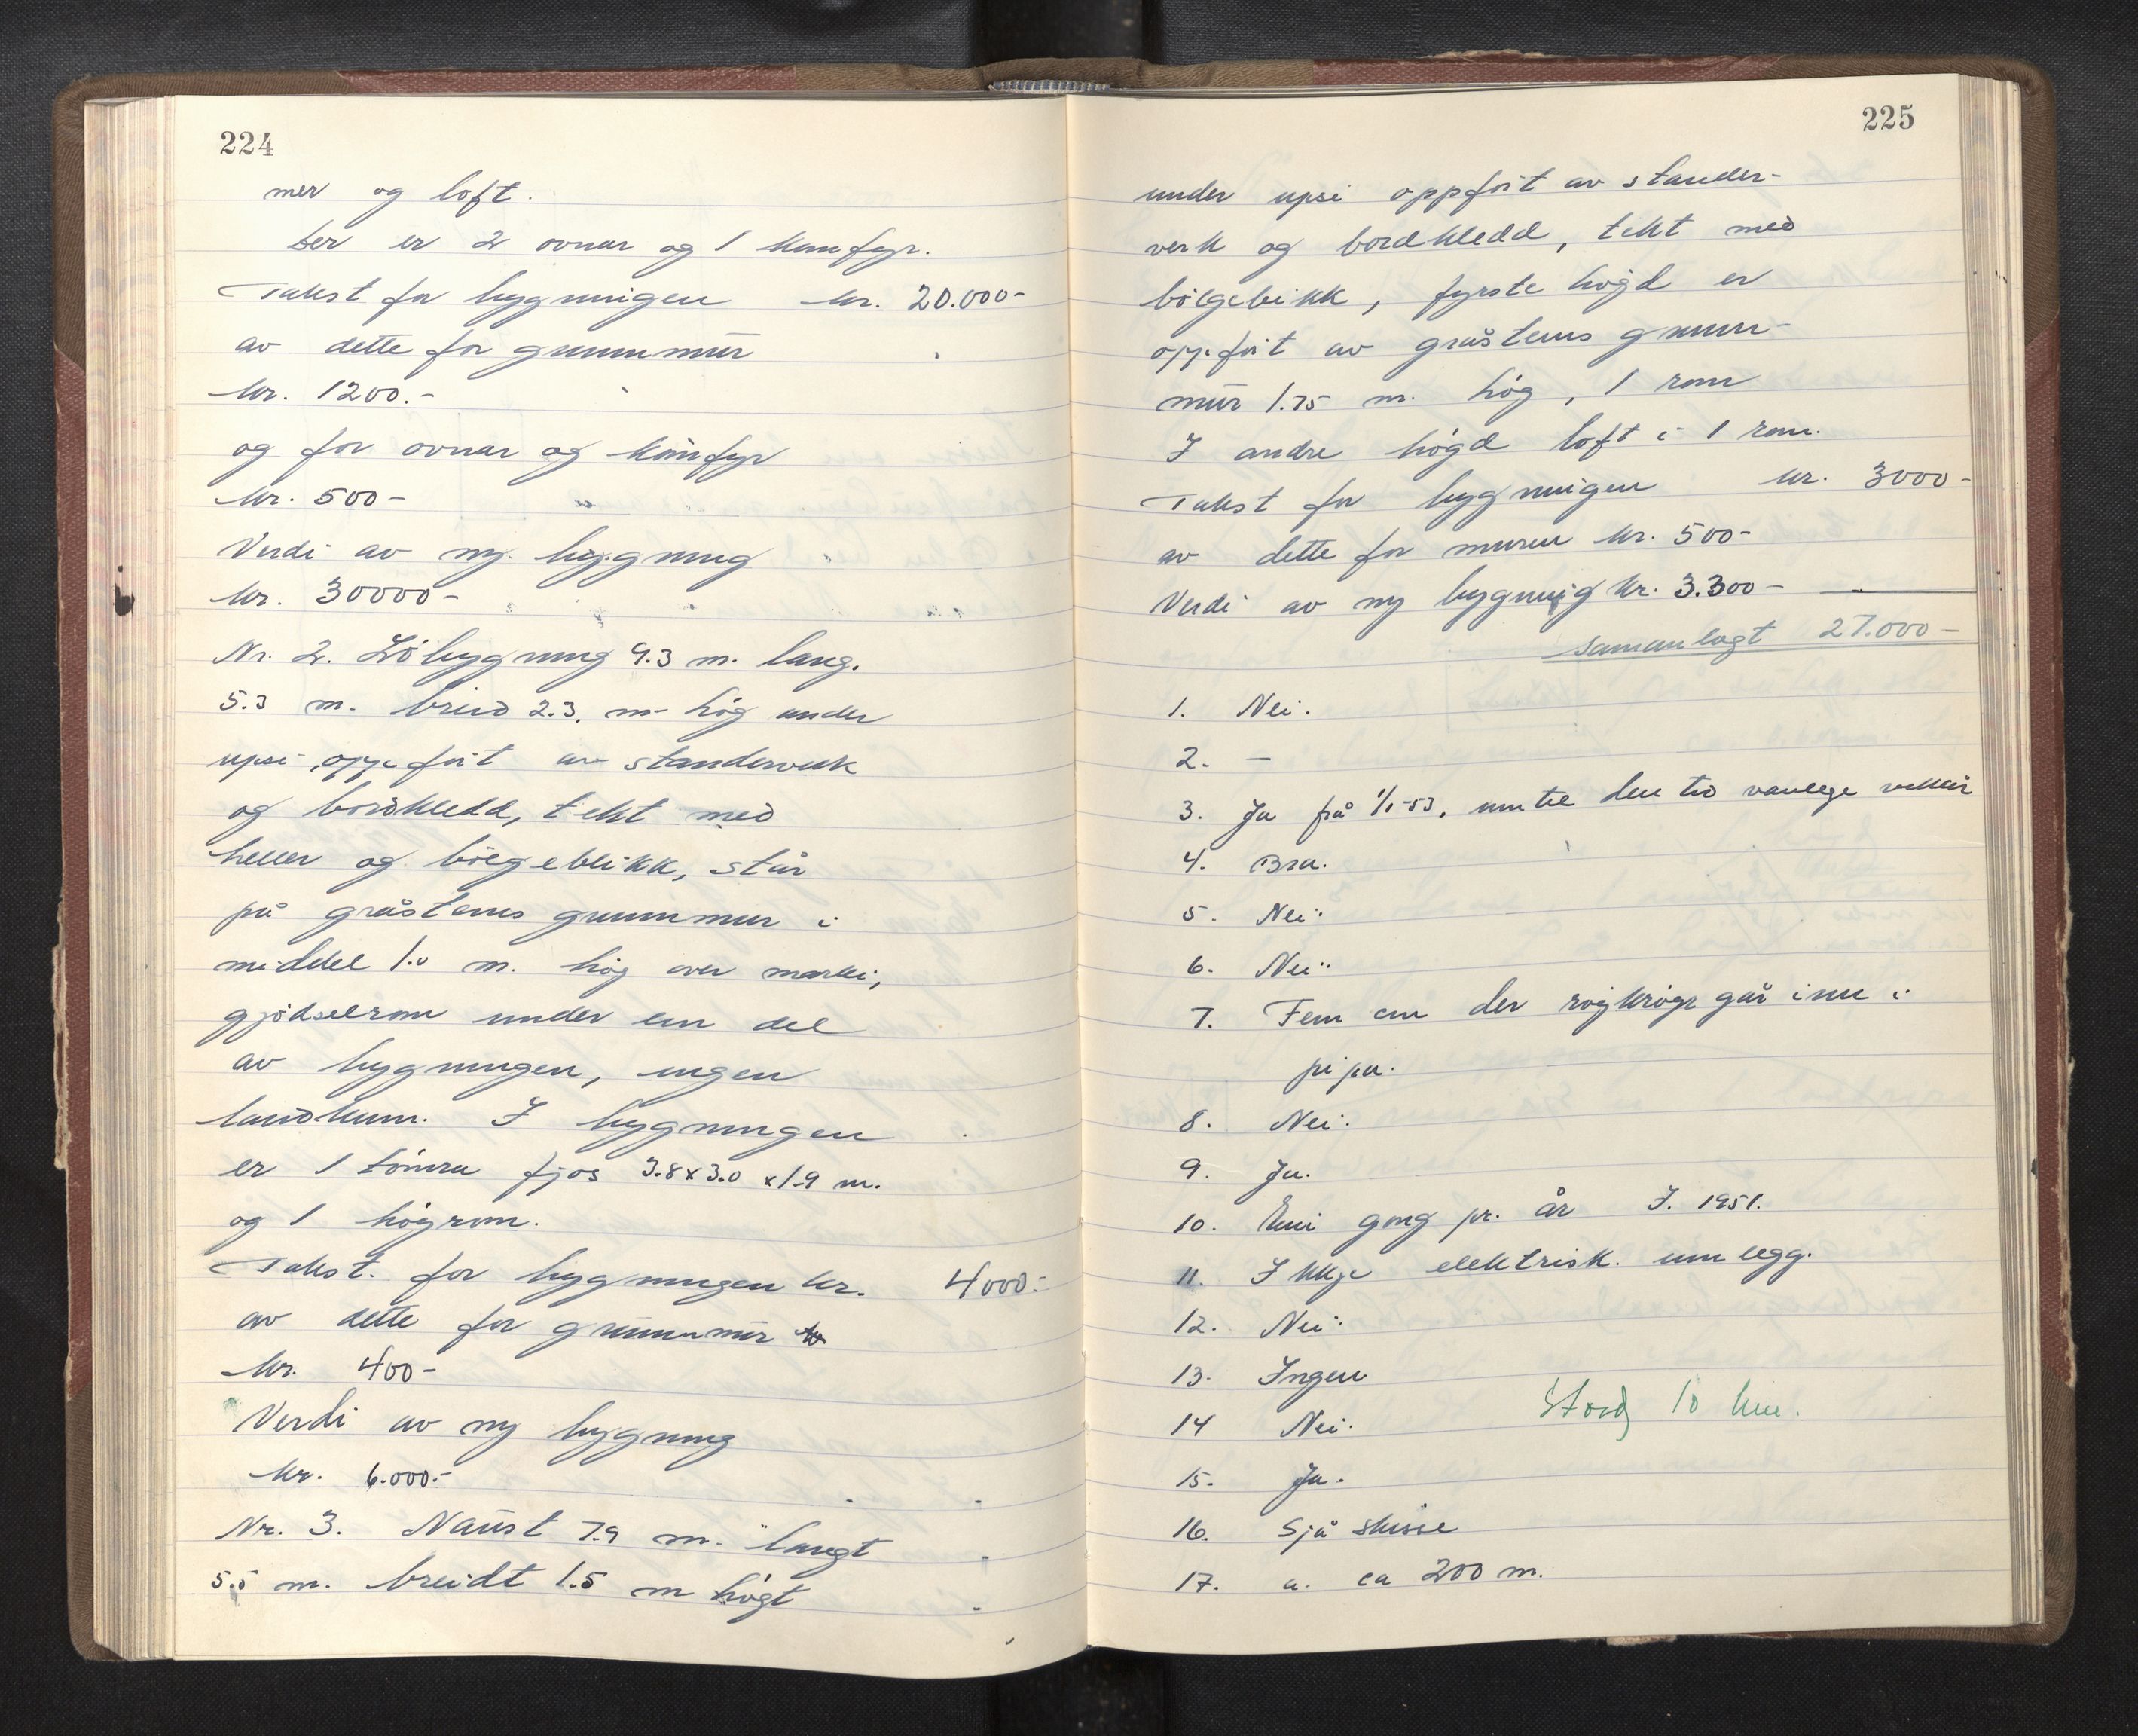 224
mer og loft.
Der er 2 ovnar og 1 komfyr.
Takst for bygningen kr. 20.000-
av dette for grunnmur
kr. 1200.-
og for ovnar og komfyr
kr. 500-
Verdi av ny bygning
kr. 30000-
Nr. 2. Löbygning 9.3 m. lang.
5.3 m. breid 2.3. m høg under
upsi, oppført av standerverk
og bordkledd, tekt med
heller og bølgeblikk, står
på gråsteins grunnmur i
middel 1.0 m. høg over marki,
gjødselrom under ein del
av bygningen, ingen
landkum. I bygningen
er 1 tømra fjos 3.8 x 3.0 x 1.9 m.
og 1 høyrom.
Takst. for bygningen kr. 4000.-
av dette for grunnmur
kr. 400-
Verdi av ny bygning
kr. 6.000.-
Nr. 3. Naust 7.9 m. langt
5.5 m. breidt 1.5 m høgt
225
under upsi oppført av stander-
verk og bordkledd, tekt med
bølgebikk, fyrste høgd er
oppført av gråsteins grunn-
mur 1.75 m. høg, 1 rom
I andre høgd loft i 1 rom.
Takst for bygningen kr. 3000-
av dette for muren kr. 500-
Verdi av ny bygning kr. 3.300-
samanlagt 27.000-
1. Nei.
2. -
3. Ja frå 1/1-53, inntil den tid vanlege vilkår
4. Bra.
5. Nei.
6. Nei.
7. Fem cm der røykrøyr går inn i
pipa.
8. Nei.
9. Ja.
10. Ein gong pr. år I. 1951.
11. Ikkje elektrisk. innlegg.
12. Nei.
13. Ingen
Stord 10 km.
14 Nei.
15. Ja.
16. Sjå skisse
17. a. ca 200 m.